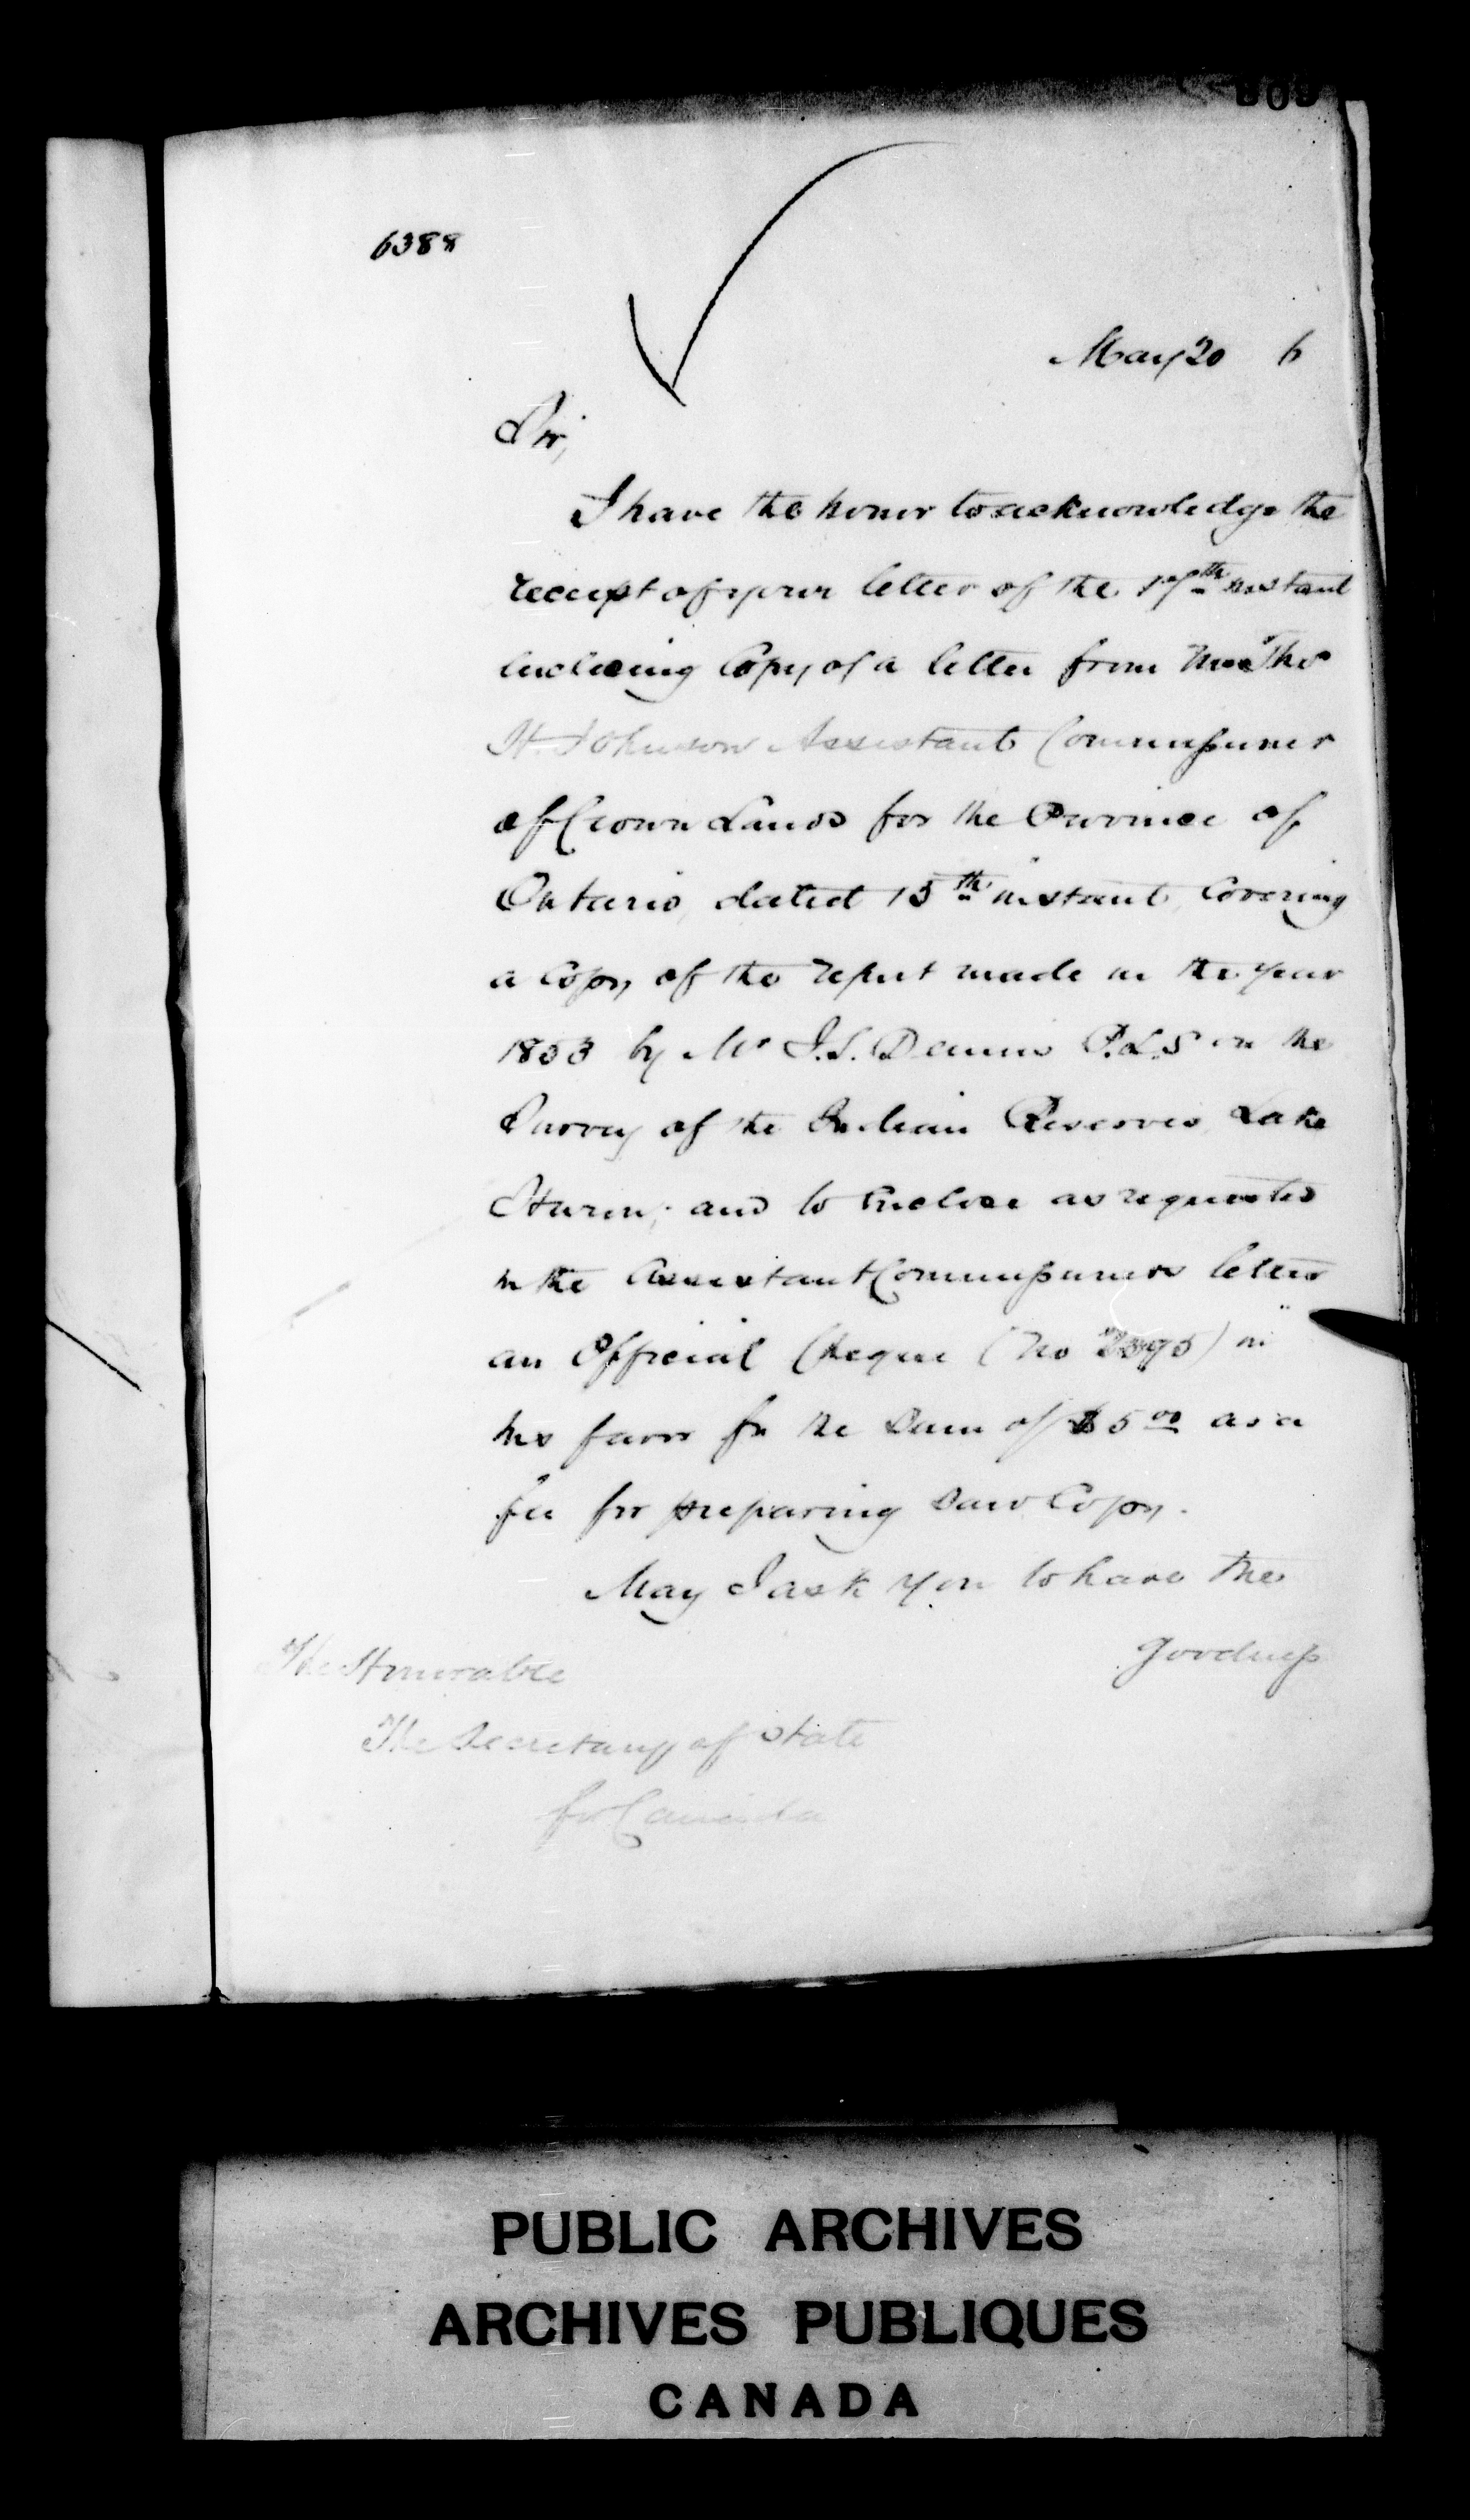 809
6388
May 20 6
Sir,
I have the honor to acknowledge the
receipt of your letter of the 17th instant
enclosing Copy of a letter from Mr Thos
H. Johnson Assistant Commissioner
of Crown Lands for the Province of
Ontario, dated 15th instant, Covering
a Copy of the report made in the year
1853 by Mr J.S. Dennis P.L.S on the
Survey of the Indian Reserves, Lake
Huron; and to Enclose as requested
in the Assistant Commissioners letter
an Official Cheque (No 2395) in
his favor for the Sum of $5.00 as a
fee for preparing said Copy.
May I ask you to have the
goodness
The Honorable
The Secretary of State
for Canada
PUBLIC ARCHIVES
ARCHIVES PUBLIQUES
CANADA